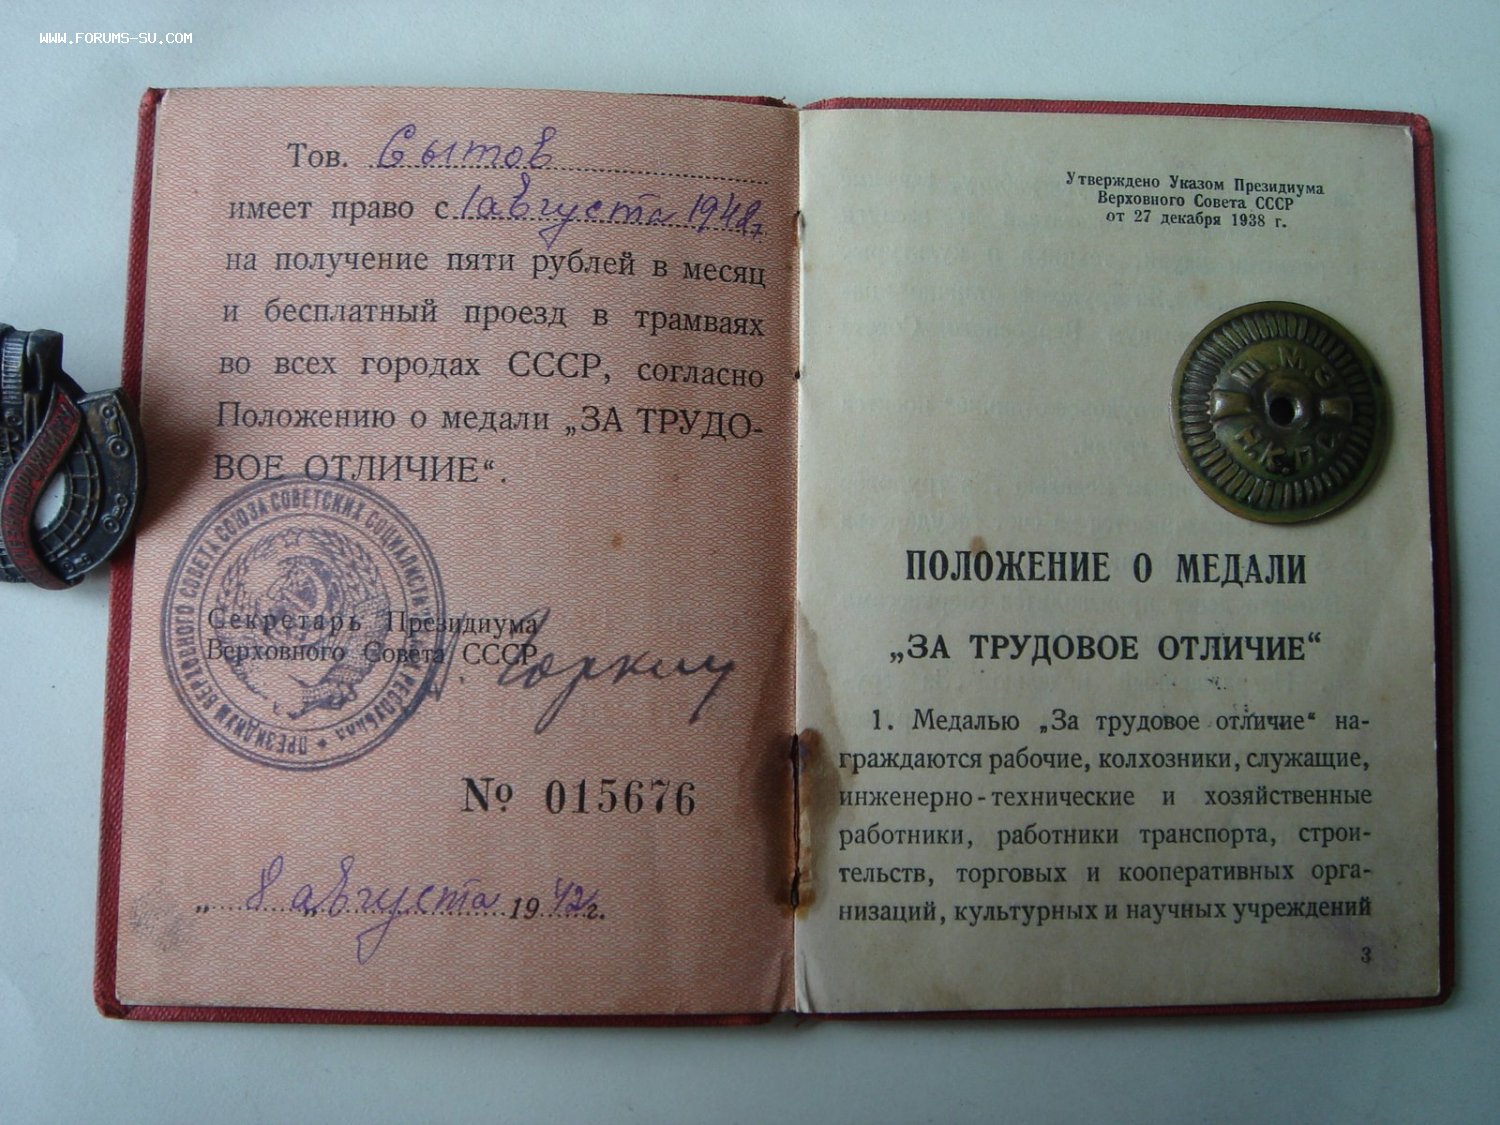 WWW.FORUMS-SU.COM
Тов. Сытов
имеет право с 1 августа 1942 г.
на получение пяти рублей в месяц
и бесплатный проезд в трамваях
во всех городах СССР, согласно
Положению о медали „ЗА ТРУДО-
ВОЕ ОТЛИЧИЕ“.
ПРЕЗИДИУМ ВЕРХОВНОГО СОВЕТА СОЮЗА СОВЕТСКИХ СОЦИАЛИСТИЧ. РЕСПУБЛИК
Секретарь Президиума
Верховного Совета СССР
№ 015676
„ 8 августа 1942 г.
Утверждено Указом Президиума
Верховного Совета СССР
от 27 декабря 1938 г.
Ш.М.З
Н.К.П.С.
ПОЛОЖЕНИЕ О МЕДАЛИ
„ЗА ТРУДОВОЕ ОТЛИЧИЕ“
1. Медалью „За трудовое отличие“ на-
граждаются рабочие, колхозники, служащие,
инженерно-технические и хозяйственные
работники, работники транспорта, строи-
тельств, торговых и кооперативных орга-
низаций, культурных и научных учреждений
3